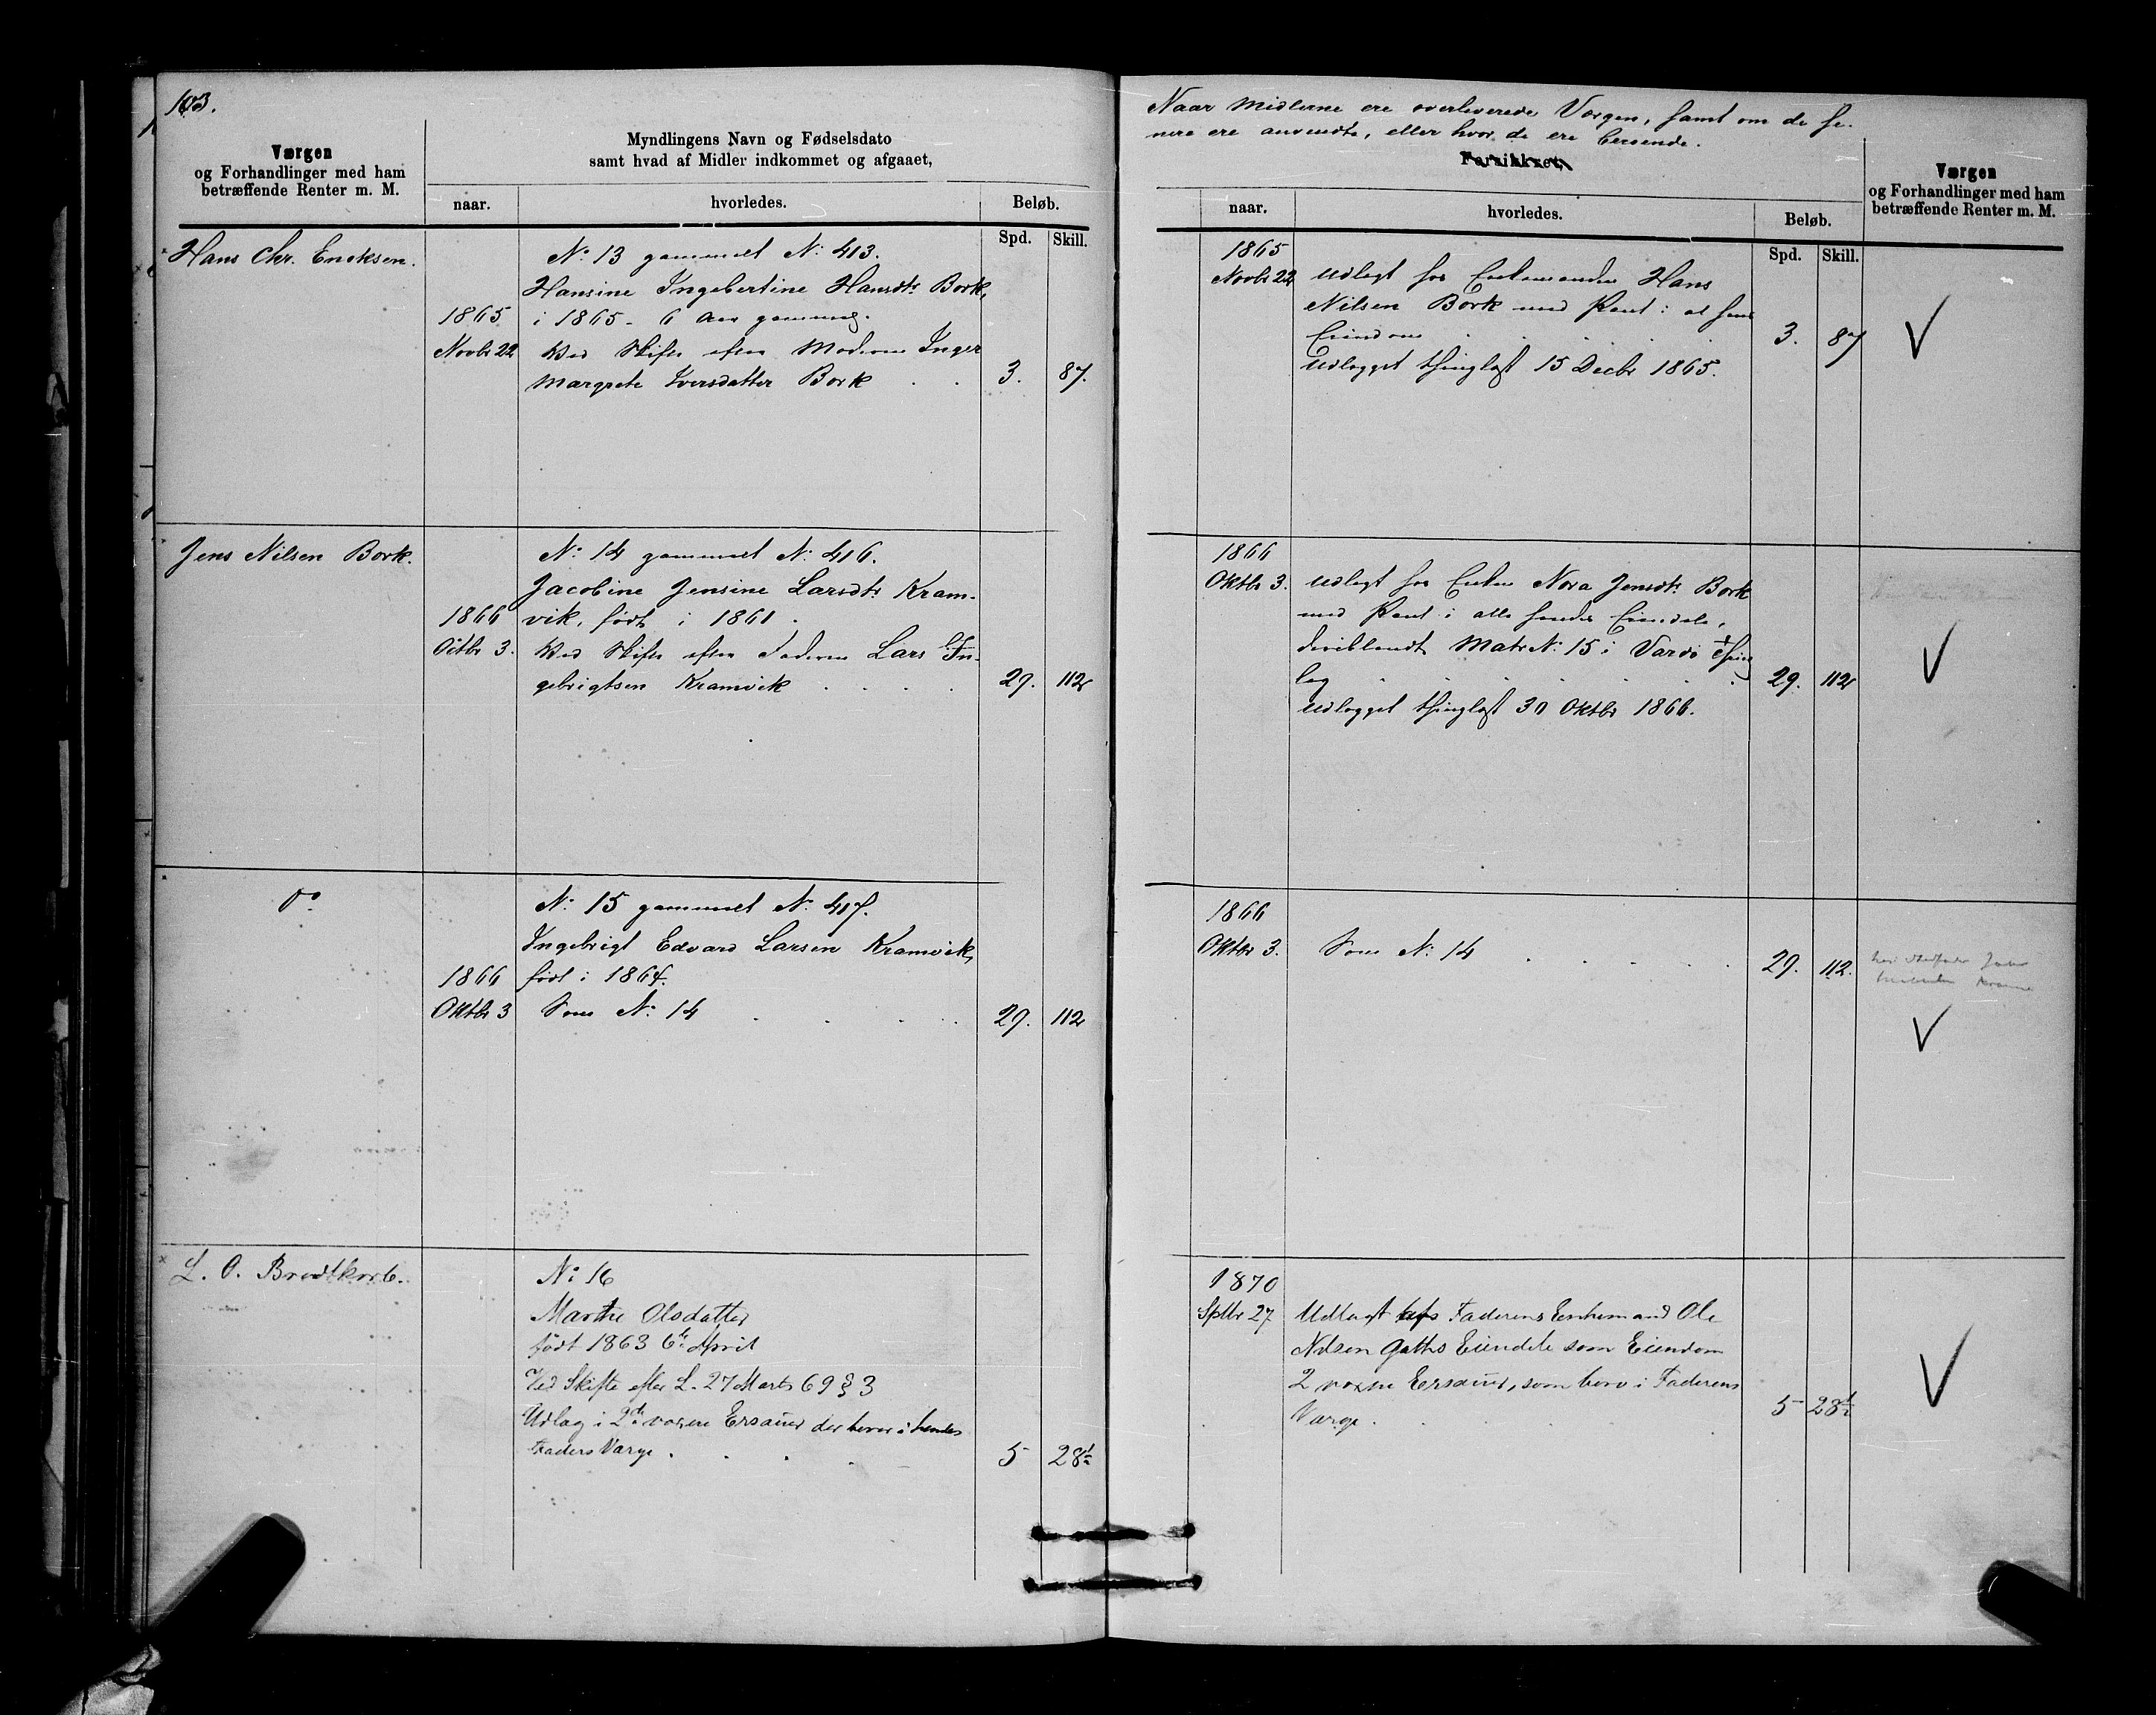 103.
Værgen
og Forhandlinger med ham
betræffende Renter m. M.
Myndlingens Navn og Fødselsdato
samt hvad af Midler indkommet og afgaaet,
naar.
hvorledes.
Beløb.
Spd. Skill.
Hans Chr. Ericksen.
No 13 gammelt No 413.
Hansine Ingebertine Hansdtr Bork,
1865 i 1865 - 6 Aar gammel.
Novbr 22 Ved Skifte efter Moderen Inger
Margrete Iversdatter Bork . . 3. 87.
Jens Nilsen Bork.
No 14 gammelt No 416.
Jacobine Jensine Larsdtr Kram-
1866 vik, født i 1861.
Oktbr 3. Ved Skifte efter Faderen Lars In-
gebrigtsen Kramvik . . . . 29. 112
Do
No 15 gammelt No 417.
Ingebrigt Edvard Larsen Kramvik,
1866 født i 1864.
Oktbr 3 Som No 14 . . . . 29. 112
L. O. Brodtkorb.
No 16
Marthe Olsdatter
født 1863 6te April
Ved Skifte efter L. 27 Marts 69 § 3
Udlag i 2de voxne Ersauer der beror i hendes
Faders Værge . . . . 5 28½
Naar Midlerne ere overleverede Værgen, samt om de se-
nere ere anvendte, eller hvor de ere beroende.
naar.
hvorledes.
Beløb.
Spd. Skill.
Værgen
og Forhandlinger med ham
betræffende Renter m. M.
1865
Novbr 22 Udlagt hos Enkemanden Hans
Nilsen Bork med Pant i al hans
Eiendom . . . . . 3. 87
Udlægget thinglæst 15 Decbr 1865.
1866
Oktbr 3. Udlagt hos Enken Nora Jensdtr Bork
med Pant i alle hendes Eiendele,
deriblandt Matr No 15 i Vardø Thing
lag . . . . . . 29. 112
Udlægget thinglæst 30 Oktbr 1866.
1866
Oktbr 3. Som No 14 . . . . . 29. 112.
1870
Sptbr 27 Udlagt Faderens Enkemand Ole
Nilsen Eiendele som Eiendom
2 voxne Ersauer, som bero i Faderens
Værge . . . . 5 28½